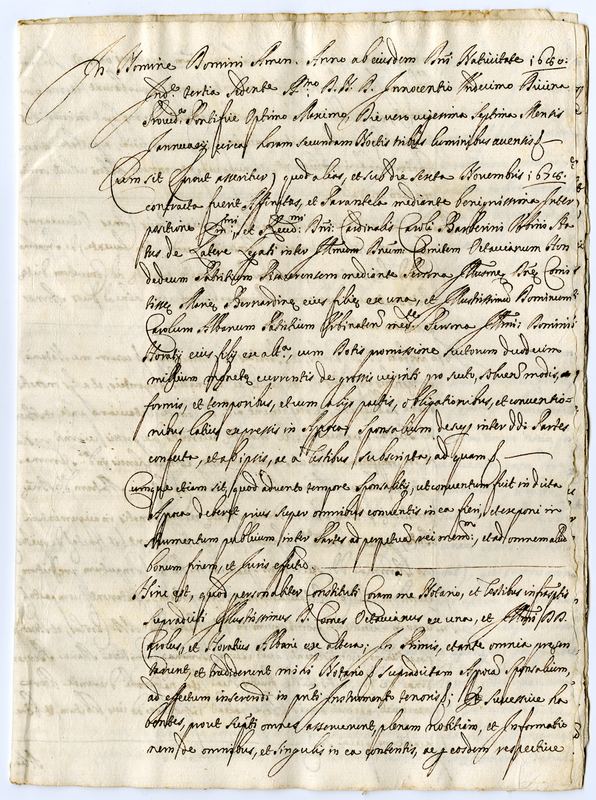 In Nomine Domini Amen. Anno ab eiusdem Dni Nativitate 1680:
Indne tertia sedente SSmo D. N. D. Innocentio Undecimo Divina
Provida Pontifice Optimo Maximo, Die vero vigesima septima Mensis
Januarij circa horam secundam Noctis tribus luminibus accensis
Cum sit (prout asseritur) quod alias, et sub die sexta Novembris 1678:
contracta fuerit Affinitas, et Parentela mediante benignissima Inter
positione Emi, et Revdmi Dni Cardinalis Caroli Barberini Urbini Sta
tus de Latere Legati inter Illmum Dnum Comitem Octavianum Hon
dedeum Patritium Pisaurensem mediante Persona Illusmae Dnae Comi
tissae Mariae Bernardinae eius filiae ex una, et Illustrissimum Dominum
Carolum Albanum Patritium Urbinatem medte Persona Illmi Domini
Horatij eius filij ex alta, cum Dotis promissione scutorum duodecim
millium monetae currentis de grossis viginti pro scuto, solvend modis,
formis, et temporibus, et cum alijs pactis, obligationibus, et conventio-
nibus latius expressis in Apoca Sponsalium desup inter ddi Partes
confecta, et ab ipsis, ac a Testibus subscripta, ad quam
Cumque etiam sit, quod advento tempore sponsalitij, ut conventum fuit in dicta
Apoca deberet prius super omnibus conventis in ea fieri, et reponi in
strumentum publicum inter Partes ad perpetuam rei mem:, et ad omnem alium
bonum finem, et Juris effectum
Hinc est, quod personaliter Constituti Coram me Notario, et Testibus infraptis
supradicti Illustrissimus D. Comes Octavianus ex una, et Illmi DD.
Carolus, et Horatius Albani ex altera; In Primis, et ante omnia presen
tarunt, et tradiderunt mihi Notario supradictam Apocam Sponsalium,
ad effectum inserendi in pnti Instrumento tenoris, successive ha
bentes, prout supti omnes asseverunt, plenam notitiam, et Informatio
nem de omnibus, et singulis in ea contentis, ac eosdem respective